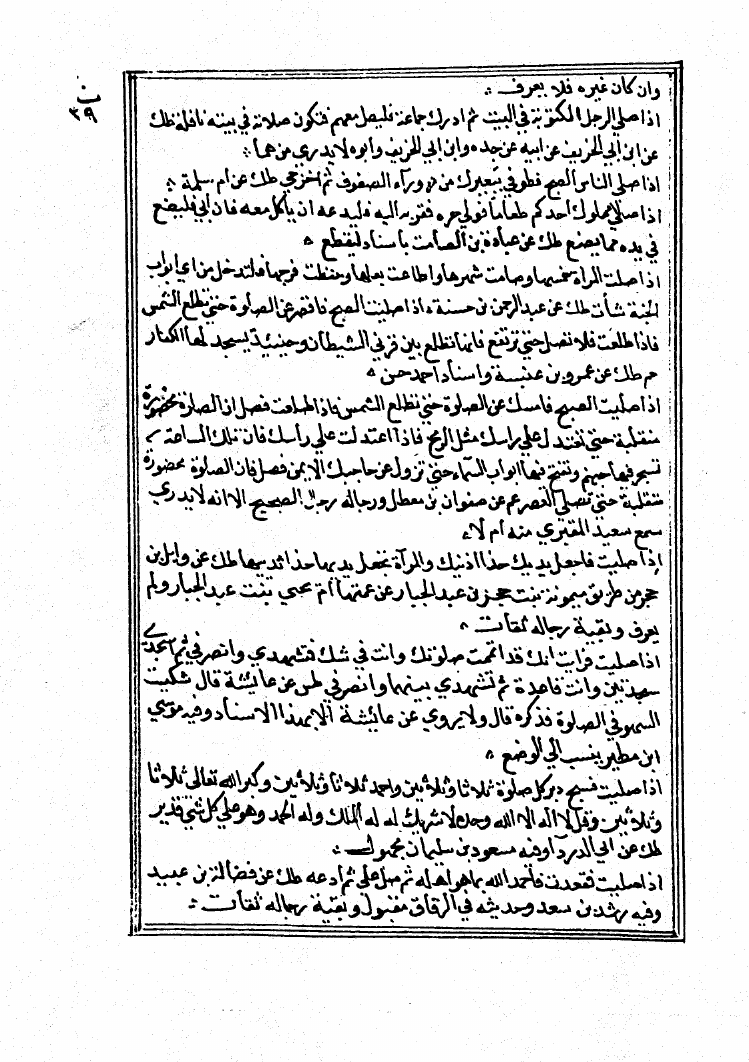 ن
٣٩
وان كان غيره فلا يعرف :.
اذا صلي الرجل المكتوبة في البيت ثم ادرك جماعة فليصل معهم فتكون صلاته في بيته نافلة طك
عن ابن ابي الخريف عن ابيه عن جده وابن ابي الخريف وأبوه لا يدري من هما :.
اذا صلي الناس الصبح فطوفي بعيرك من ورآء الصفوف ثم اخرجي طك عن ام سلمة ۞
اذا صلي لاحدكم طعاما فولي حره فقربه اليه فليدعه ان يأكل معه فان ابي فليضع
في يده مما يصنع طك عن عبادة بن الصامت بأسناد ليقطع ۞
اذا صلت المراة خمسها وصامت شهرها واطاعت بعلها وحفظت فرجها فلتدخل من اي ابواب
الجنة شأت طك عن عبد الرحمن بن حسنة ۞ اذا صليت الصبح فاقصر عن الصلوة حتي تطلع الشمس
فاذا طلعت فلا تصل حتي ترتفع فانها تطلع بين قرني الشيطان وحينيذ يسجد لها الكفار
حم طك عن عمرو بن عنبسة واسناد احمد حسن ۞
اذا صليت الصبح فامسك عن الصلوة حتي تطلع الشمس فاذا طلعت فصل فان الصلاة محضورة
متقلبة حتي تعتدل علي راسك مثل الرمح فاذا اعتدلت علي رأسك فان تلك الساعة
تسجر فيها جهنم وتفتح فيها ابواب السماء حتي تزول عن حاجبك الايمن فصل فان الصلوة محضورة
متقلبة حتي تصلي العصر عم عن صفوان بن معطل ورجاله رجال الصحيح الا انه لا يدري
سمع سعيد المقبري منه ام لا ۞
إذا صليت فاجعل يديك حذا اذنيك والمرآة تجعل يديها حذا ثدييها طك عن وايل بن
حجر من طريق ميمونة بنت حجر بن عبد الجبار عن عمتها أم يحيي بنت عبد الجبار ولم
يعرف وبقية رجاله ثقات ۞
اذا صليت فرايت انك قد اتممت صلوتك وانت في شك فتشهدي وانصرفي ثم اسجدي
سجدتين وانت قاعدة ثم تشهدي بينهما وانصرفي طس عن عايشة قال شكيت
السهو في الصلوة فذكره قال ولا يروي عن عايشة الا بهذا الاسناد وفيه موسي
ابن مطير ينسب الي الوضع ۞
اذا صليت فسبح دبر كل صلوة ثلاثا وثلاثين واحمد ثلاثا وثلاثين وكبر الله تعالى ثلاثا
وثلاثين وقل لا اله الا الله وحده لا شريك له له الملك وله الحمد وهو علي كل شئ قدير
طك عن ابي الدردآ وفيه مسعود بن سليمان مجهول :.
اذا صليت فقعدت فأحمد الله بما هو اهله ثم صل علي ثم ادعه طك عن فضالة بن عبيد
وفيه رشد بن سعد وحديثه في الرقاق مقبول وبقية رجاله ثقات :.